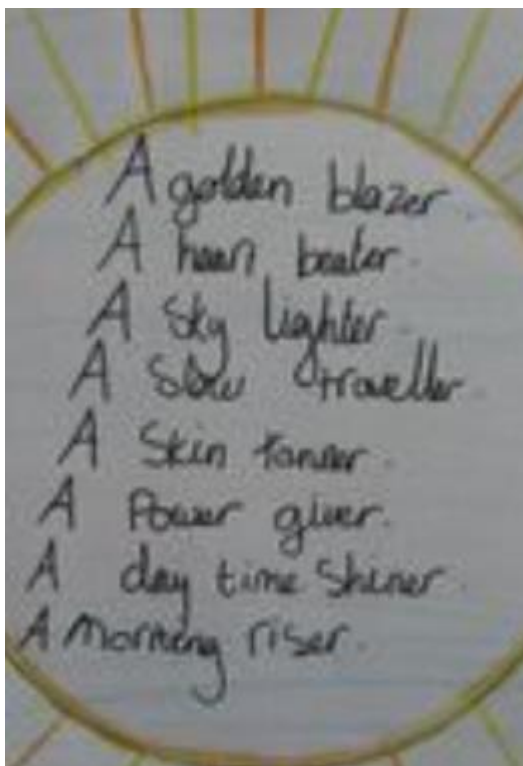 A golden blazer.
A beater.
A Sky lighter.
A Slow traveller.
A Skin tanner.
A Power giver.
A day time Shiner.
A Morning riser.